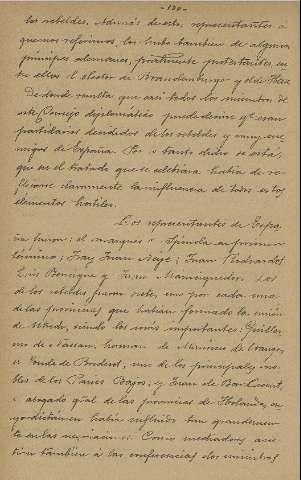 - 130 -
los rebeldes. Además de estos, representantes a
quienes referimos, los hubo tambien de algunos
principes alemanes, protestantes, en
tre ellos el elector de Brandenburgo y el de Hesse.
De donde resulta que casi todos los miembros de
este Consejo diplomático puede decirse qº eran
partidarios decididos de los rebeldes y muy ene
migos de España. Por lo tanto dicho se está,
que en el tratado que se celebrara había de re
flejarse claramente la influencia de todos estos
elementos hostiles.
Los representantes de Espa
ña fueron: el marques Spinola en primer
término; Fray Juan Neyé; Juan Richardot
Luis Verreique y Juan Mancicidor. Los
de los rebeldes fueron siete, uno por cada una
de las provincias que habían formado la unión
de Utrech, siendo los más importantes: Guiller
mo de Nassau, hermano de Mauricio de Orange,
el Conde de Brederod, uno de los principales no
bles de los Países Bajos, y Juan de
abogado gral de las provincias de Holanda, cu
yo dictamen había influido tan grandemen
te en las negociaciones. Como mediadores asis
tieron tambien á las conferencias los ministros